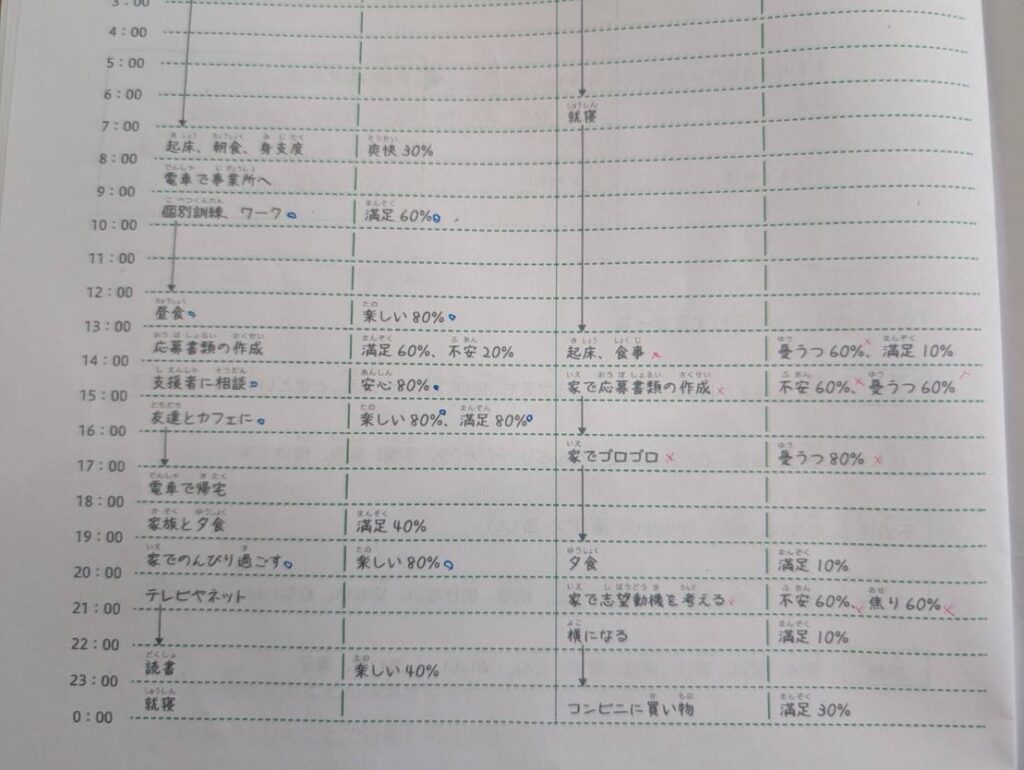 3:00
4:00
5:00
6:00
就寝
7:00
起床、朝食、身支度 爽快 30%
8:00
電車で事業所へ
9:00
個別訓練、ワーク 満足 60%
10:00
11:00
12:00
昼食 楽しい 80%
13:00
応募書類の作成 満足 60%、不安 20% 起床、食事 憂うつ 60%、満足 10%
14:00
支援者に相談 安心 80% 家で応募書類の作成 不安 60%、憂うつ 60%
15:00
友達とカフェに 楽しい 80%、満足 80%
16:00
家でゴロゴロ 憂うつ 80%
17:00
電車で帰宅
18:00
家族と夕食 満足 40%
19:00
家でのんびり過ごす 楽しい 80% 夕食 満足 10%
20:00
テレビやネット 家で志望動機を考える 不安 60%、焦り 60%
21:00
横になる 満足 10%
22:00
読書 楽しい 40%
23:00
就寝 コンビニに買い物 満足 30%
0:00